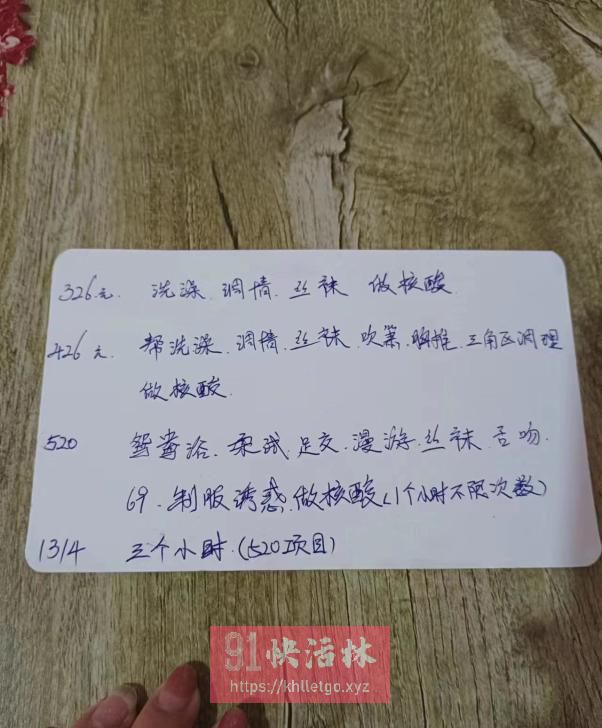 326元. 洗澡.调情.丝袜 做核酸.
426元. 帮洗澡.调情.丝袜.吹箫.胸推.三角区调理
做核酸.
520 鸳鸯浴.柔式.足交.漫游.丝袜.舌吻.
69.制服诱惑.做核酸(1个小时不限次数)
1314 三个小时.(520项目)
91快活林
https://khlletgo.xyz